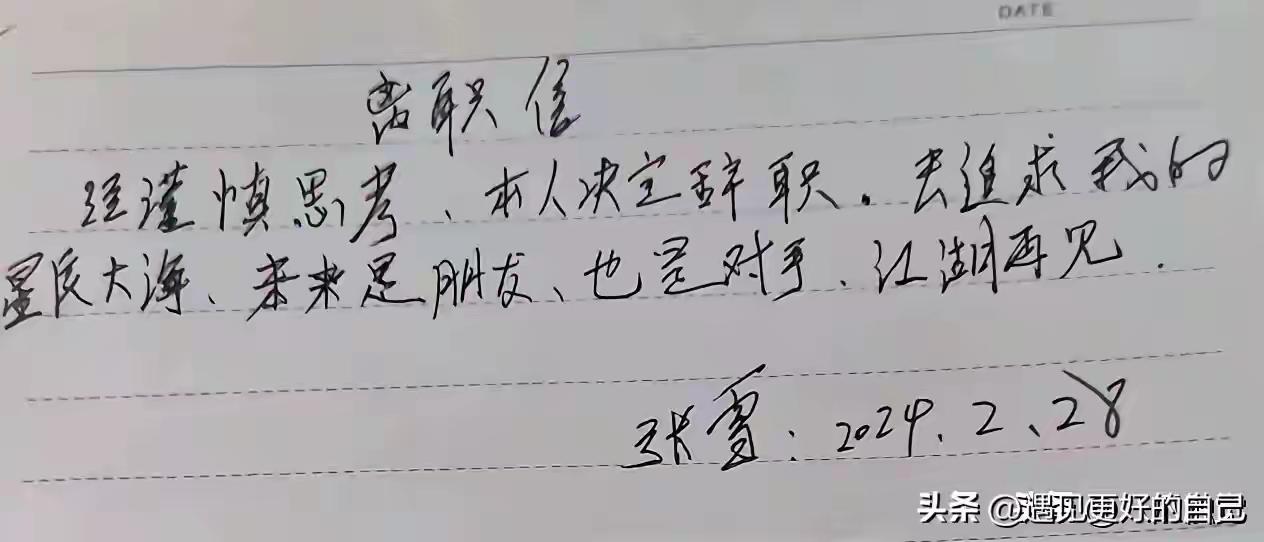 DATE
离职信
经谨慎思考、本人决定辞职。去追求我的
星辰大海、未来是朋友、也是对手、江湖再见.
张雪: 2024.2、28
头条 @遇见更好的自己